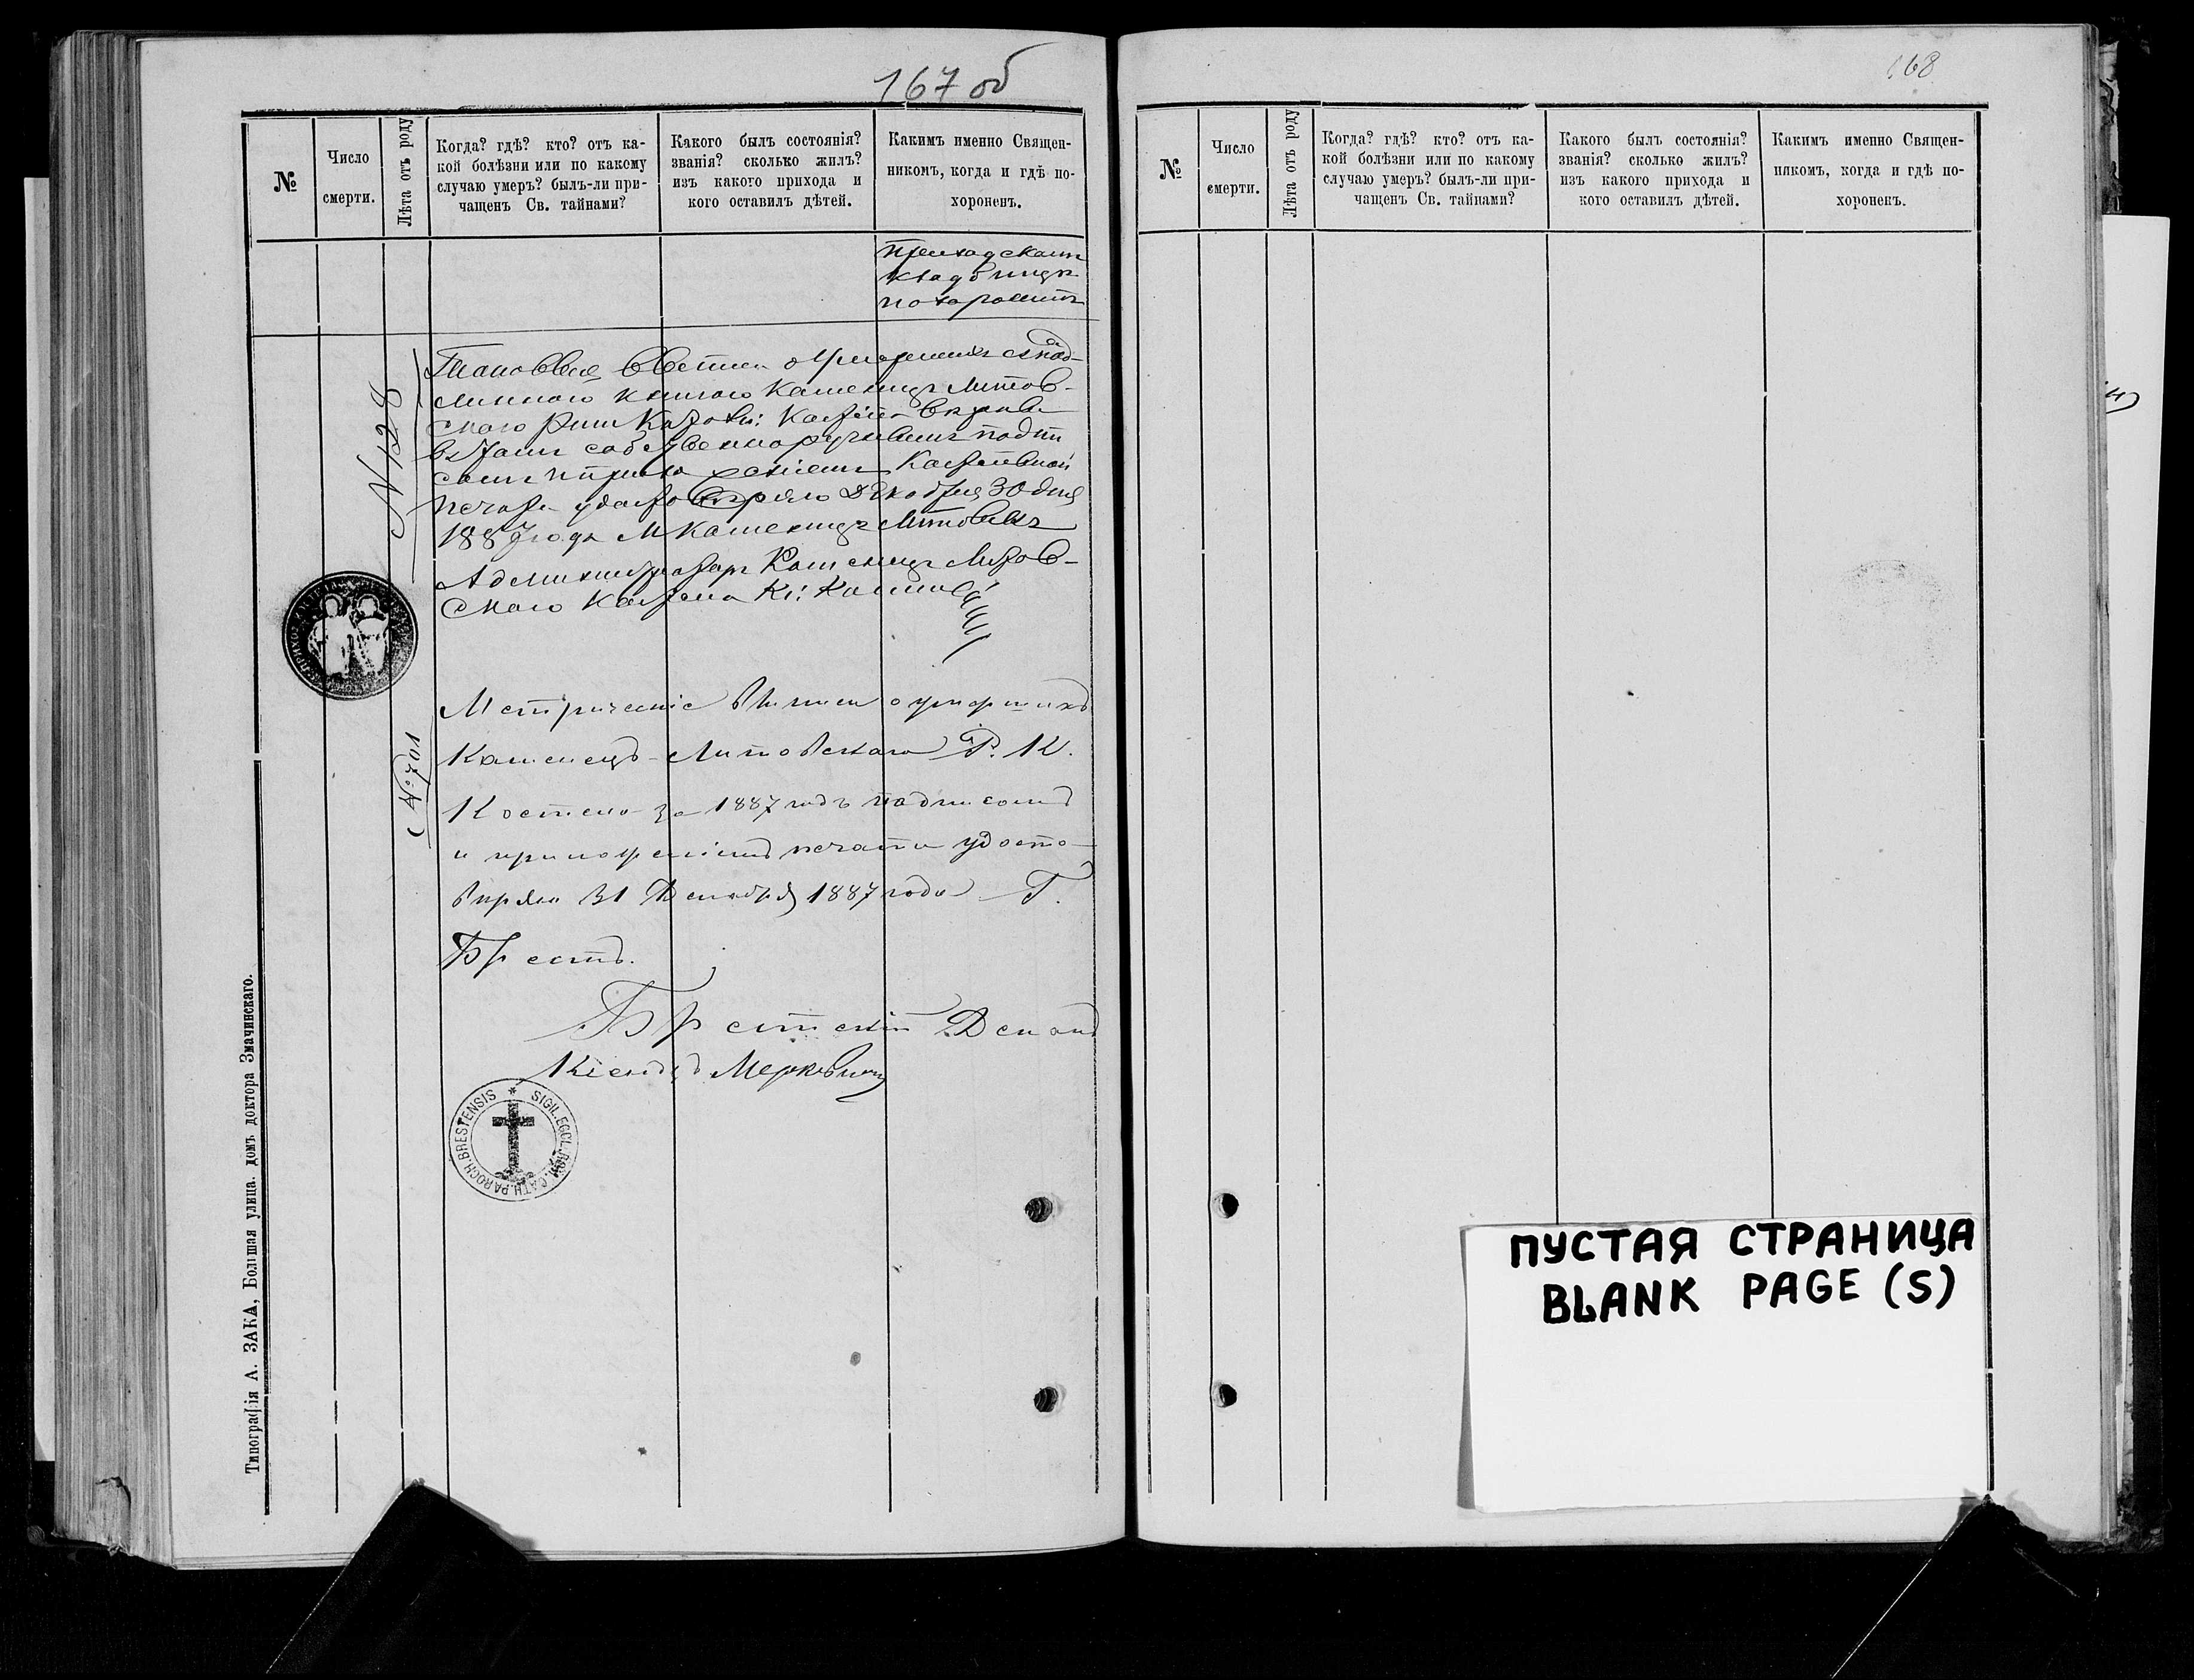 167 об
№
Число
смерти.
Лѣта отъ роду
Когда? гдѣ? кто? отъ ка-
кой болѣзни или по какому
случаю умеръ? былъ-ли при-
чащенъ Св. тайнами?
Какого былъ состоянія?
званія? сколько жилъ?
изъ какого прихода и
кого оставилъ дѣтей.
Какимъ именно Священ-
никомъ, когда и гдѣ по-
хороненъ.
приходскомъ
кладбищѣ
похоронилъ
№ 128
Таковыя выписи о умершихъ съ под-
линною книгою Каменецъ Литов-
скаго Рим Катол:
собственноручнымъ подпи
сомъ и приложеніемъ Костельной
печати удостовѣряю Декабря 30 дня
1887 года М Каменецъ Литовскъ
Администраторъ Каменецъ Литов-
скаго Костела Кс:
№ 701
Метрическіе выписи о умершихъ
Каменецъ-Литовскаго Р. К.
Костела за 1887 годъ подписомъ
и приложеніемъ печати удосто-
вѣряю 31 Декабря 1887 года Г.
Брестъ.
Брестскій Деканъ
Ксендзъ
SIGIL. ECCL. ROM. CATH. PAROCH. BRESTENSIS
Типографія А. ЗАКА, Большая улица. домъ доктора Змачинскаго.
168
№
Число
смерти.
Лѣта отъ роду
Когда? гдѣ? кто? отъ ка-
кой болѣзни или по какому
случаю умеръ? былъ-ли при-
чащенъ Св. тайнами?
Какого былъ состоянія?
званія? сколько жилъ?
изъ какого прихода и
кого оставилъ дѣтей.
Какимъ именно Священ-
никомъ, когда и гдѣ по-
хороненъ.
ПУСТАЯ СТРАНИЦА
BLANK PAGE (S)